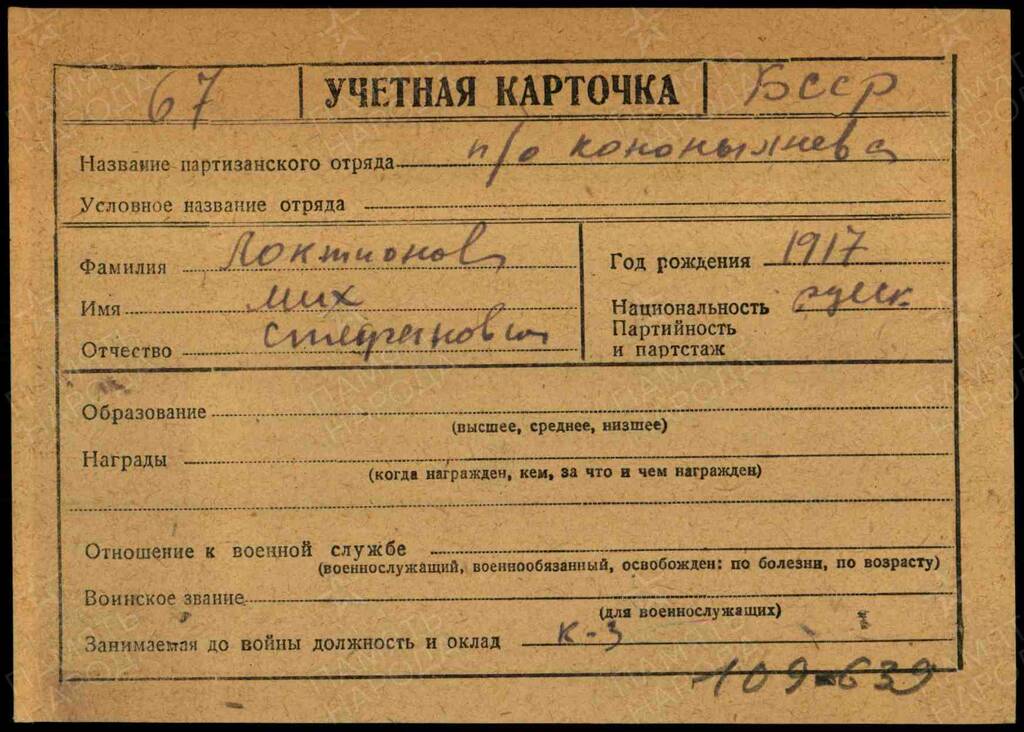 67 УЧЕТНАЯ КАРТОЧКА БССР
Название партизанского отряда п/о
Условное название отряда
Фамилия Локтионов
Год рождения 1917
Имя Мих
Национальность русск.
Партийность
и партстаж
Отчество Стефанович
Образование
(высшее, среднее, низшее)
Награды
(когда награжден, кем, за что и чем награжден)
Отношение к военной службе
(военнослужащий, военнообязанный, освобожден: по болезни, по возрасту)
Воинское звание
(для военнослужащих)
Занимаемая до войны должность и оклад к-з
109-639
ПАМЯТЬ НАРОДА